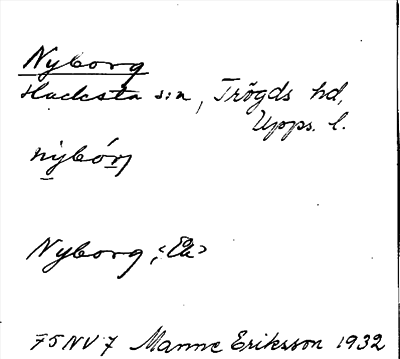 Nyborg
Hacksta sn, Trögds hd,
Upps. l.
nybórj
Nyborg, <Ek>
75NV7 Manne Eriksson 1932